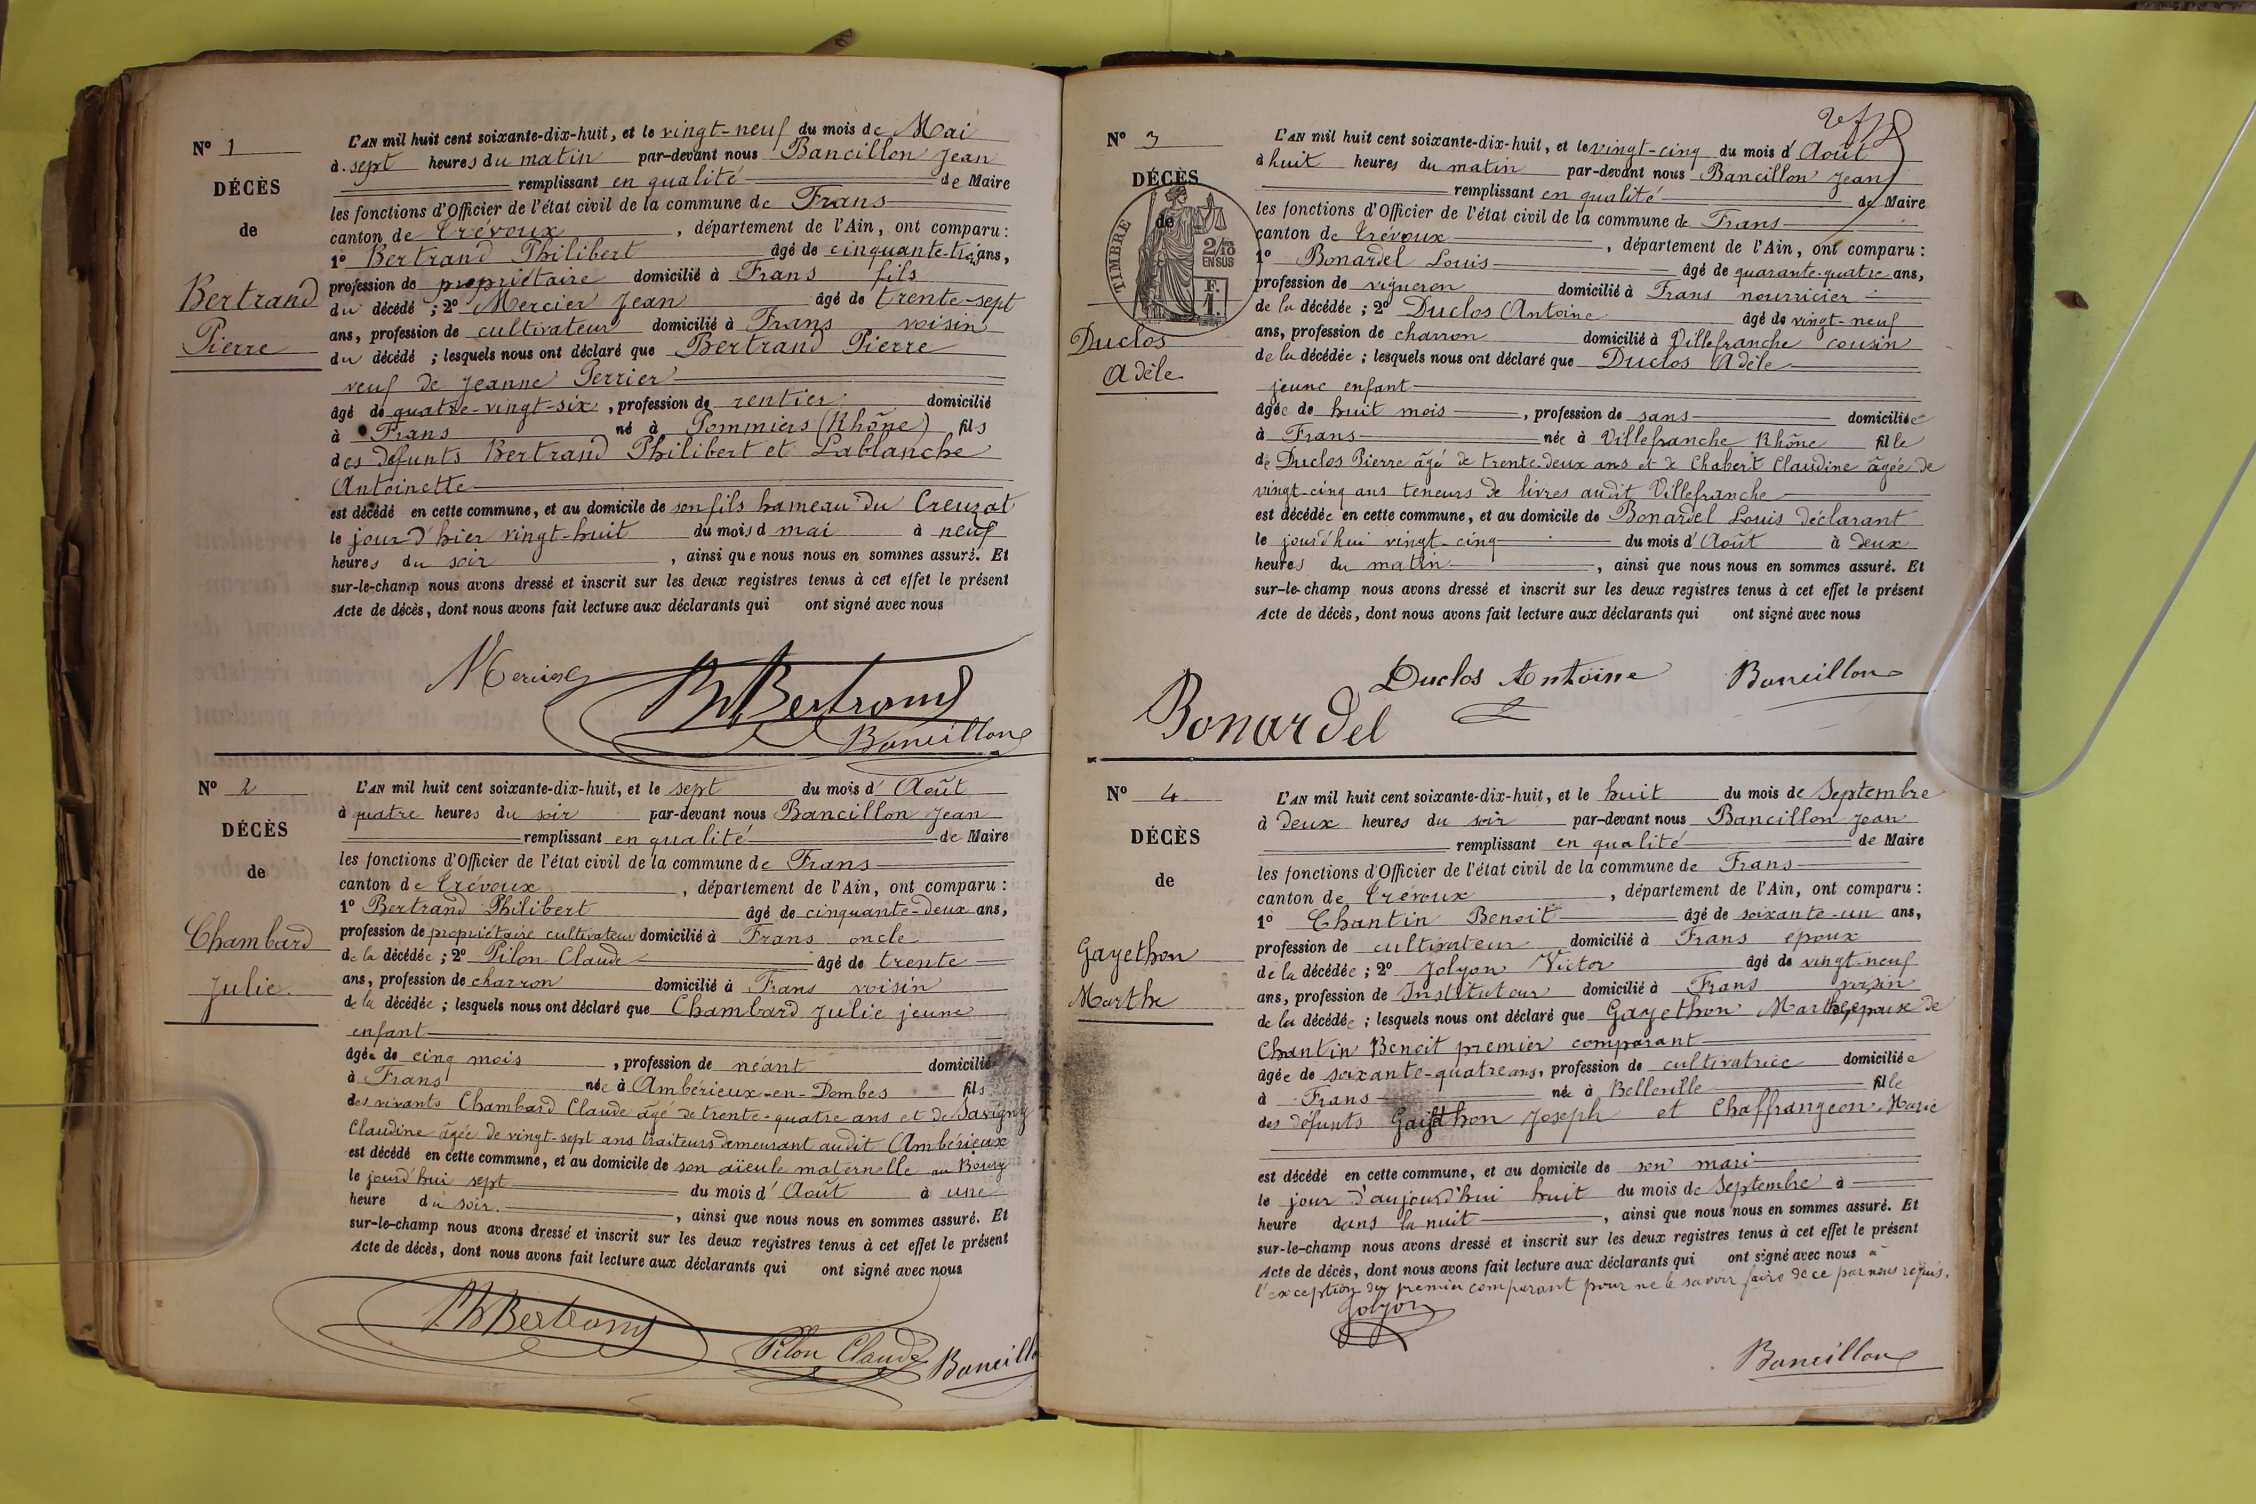 N° 1
DÉCÈS
de
Bertrand
Pierre
L'AN mil huit cent soixante-dix-huit, et le vingt-neuf du mois de Mai
à sept heures du matin par-devant nous Bancillon Jean
remplissant en qualité de Maire
les fonctions d'Officier de l'état civil de la commune de Frans
canton de Trévoux, département de l'Ain, ont comparu :
1° Bertrand Philibert âgé de cinquante-trois ans,
profession de propriétaire domicilié à Frans fils
du décédé ; 2° Mercier Jean âgé de trente-sept
ans, profession de cultivateur domicilié à Frans voisin
du décédé ; lesquels nous ont déclaré que Bertrand Pierre
veuf de Jeanne Perrier
âgé de quatre-vingt-six, profession de rentier domicilié
à Frans né à Pommiers (Rhône) fils
des défunts Bertrand Philibert et Lablanche
Antoinette
est décédé en cette commune, et au domicile de son fils hameau du Creuzat
le jour d'hier vingt-huit du mois d mai à neuf
heures du soir, ainsi que nous nous en sommes assuré. Et
sur-le-champ nous avons dressé et inscrit sur les deux registres tenus à cet effet le présent
Acte de décès, dont nous avons fait lecture aux déclarants qui ont signé avec nous
Mercier
Ph Bertrand
Bancillon
N° 2
DÉCÈS
de
Chambard
Julie
L'AN mil huit cent soixante-dix-huit, et le sept du mois d' Août
à quatre heures du soir par-devant nous Bancillon Jean
remplissant en qualité de Maire
les fonctions d'Officier de l'état civil de la commune de Frans
canton de Trévoux, département de l'Ain, ont comparu :
1° Bertrand Philibert âgé de cinquante-deux ans,
profession de propriétaire cultivateur domicilié à Frans oncle
de la décédée ; 2° Pilon Claude âgé de trente
ans, profession de charron domicilié à Frans voisin
de la décédée ; lesquels nous ont déclaré que Chambard Julie jeune
enfant
âgée de cinq mois, profession de néant domicilié
à Frans née à Ambérieux-en-Dombes fils
des vivants Chambard Claude âgé de trente-quatre ans et de Savigny
Claudine âgée de vingt-sept ans traiteurs demeurant audit Ambérieux
est décédé en cette commune, et au domicile de son aïeule maternelle au Bourg
le jourd'hui sept du mois d' Août à une
heure du soir, ainsi que nous nous en sommes assuré. Et
sur-le-champ nous avons dressé et inscrit sur les deux registres tenus à cet effet le présent
Acte de décès, dont nous avons fait lecture aux déclarants qui ont signé avec nous
Ph Bertrand
Pilon Claude
Bancillo
N° 3
DÉCÈS
de
TIMBRE
2/10
EN SUS
F.
1.
Duclos
Adèle
L'AN mil huit cent soixante-dix-huit, et le vingt-cinq du mois d' Août
à huit heures du matin par-devant nous Bancillon Jean
remplissant en qualité de Maire
les fonctions d'Officier de l'état civil de la commune de Frans
canton de Trévoux, département de l'Ain, ont comparu :
1° Bonardel Louis âgé de quarante-quatre ans,
profession de vigneron domicilié à Frans nourricier
de la décédée ; 2° Duclos Antoine âgé de vingt-neuf
ans, profession de charron domicilié à Villefranche cousin
de la décédée ; lesquels nous ont déclaré que Duclos Adèle
jeune enfant
âgée de huit mois, profession de sans domiciliée
à Frans née à Villefranche Rhône fille
de Duclos Pierre âgé de trente-deux ans et de Chabert Claudine âgée de
vingt-cinq ans teneurs de livres audit Villefranche
est décédée en cette commune, et au domicile de Bonardel Louis déclarant
le jourd'hui vingt-cinq du mois d' Août à deux
heures du matin, ainsi que nous nous en sommes assuré. Et
sur-le-champ nous avons dressé et inscrit sur les deux registres tenus à cet effet le présent
Acte de décès, dont nous avons fait lecture aux déclarants qui ont signé avec nous
Duclos Antoine
Bancillon
Bonardel
N° 4
DÉCÈS
de
Gayethon
Marthe
L'AN mil huit cent soixante-dix-huit, et le huit du mois de Septembre
à deux heures du soir par-devant nous Bancillon Jean
remplissant en qualité de Maire
les fonctions d'Officier de l'état civil de la commune de Frans
canton de Trévoux, département de l'Ain, ont comparu :
1° Chantin Benoit âgé de soixante-un ans,
profession de cultivateur domicilié à Frans époux
de la décédée ; 2° Jolyon Victor âgé de vingt-neuf
ans, profession de Instituteur domicilié à Frans voisin
de la décédée ; lesquels nous ont déclaré que Gayethon Marthe épouse de
Chantin Benoit premier comparant
âgée de soixante-quatre ans, profession de cultivatrice domiciliée
à Frans née à Belleville fille
des défunts Gayethon Joseph et Chaffrangeon Marie
est décédé en cette commune, et au domicile de son mari
le jour d'aujourd'hui huit du mois de Septembre à
heure dans la nuit, ainsi que nous nous en sommes assuré. Et
sur-le-champ nous avons dressé et inscrit sur les deux registres tenus à cet effet le présent
Acte de décès, dont nous avons fait lecture aux déclarants qui ont signé avec nous à
l'exception du premier comparant pour ne le savoir faire de ce par nous requis.
Jolyon
Bancillon